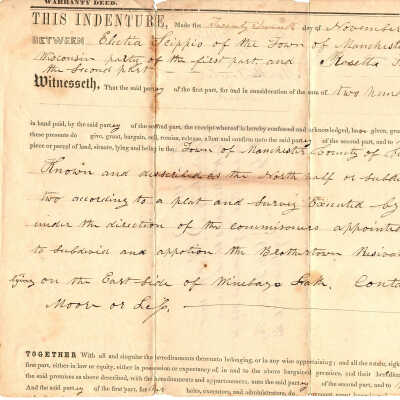 WARRANTY DEED.
THIS INDENTURE, Made this Twenty Seventh day of November
BETWEEN Electa Scippio of the Town of Manchester
Wisconsin party of the first part, and Rosetta
the Second part
Witnesseth, That the said party of the first part, for and in consideration of the sum of two hun
in hand paid, by the said party of the second part, the receipt whereof is hereby confessed and acknowledged, has given, gran
these presents do give, grant, bargain, sell, remise, release, alien and confirm unto the said party of the second part, and to
piece or parcel of land, situate, lying and being in the Town of Manchester County of
Known and described as the North half or Subdi
two according to a plat and Survey Executed by
under the direction of the commisioners appointed
to Subdivid and apportion the Brothertown
lying on the East Side of Winebago Lake. Conta
Moor or Less.
TOGETHER With all and singular the hereditaments thereunto belonging, or in any wise appertaining; and all the estate, righ
first part, either in law or equity, either in possession or expectancy of, in and to the above bargained premises, and their heredita
the said premises as above described, with the hereditaments and appurtenances, unto the said party of the second part, and to
And the said party of the first part, for her heirs, executors, and administrators, do